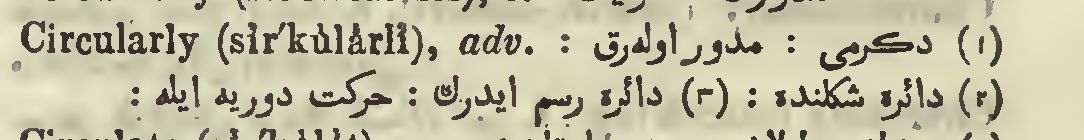 Circularly (sir′kŭlårlĭ), adv. : (١) دكرمى : مدور اولەرق
(٢) دائرە شكلندە : (٣) دائرە رسم ايدرك : حركت دوريە ايلە :